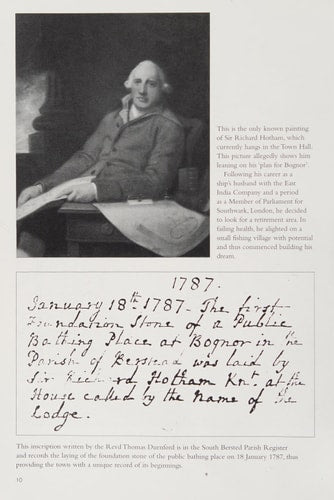 This is the only known painting
of Sir Richard Hotham, which
currently hangs in the Town Hall.
This picture allegedly shows him
leaning on his 'plan for Bognor'.
Following his career as a
ship's husband with the East
India Company and a period
as a Member of Parliament for
Southwark, London, he decided
to look for a retirement area. In
failing health, he alighted on a
small fishing village with potential
and thus commenced building his
dream.
1787.
January 18th 1787 - The first
Foundation Stone of a Public
Bathing Place at Bognor in the
Parish of Berstead was laid by
Sir Richard Hotham Knt. at the
House called by the Name of the
Lodge.
This inscription written by the Revd Thomas Durnford is in the South Bersted Parish Register
and records the laying of the foundation stone of the public bathing place on 18 January 1787, thus
providing the town with a unique record of its beginnings.
10